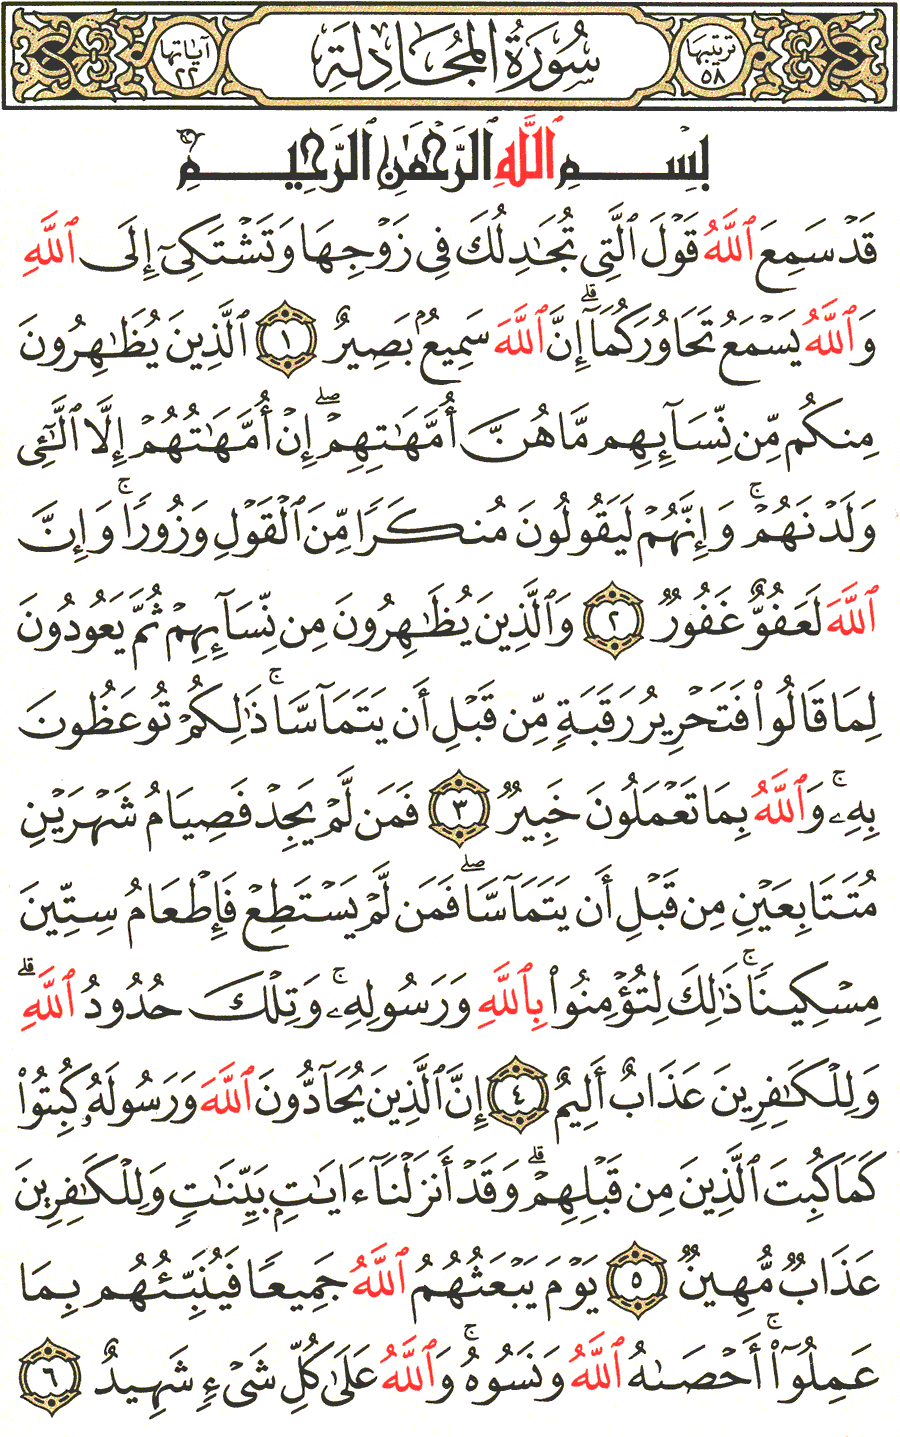 ترتيبها ٥٨ سُورَةُ المُجَادِلةِ آياتها ٢٢
بِسْمِ ٱللَّهِ ٱلرَّحْمَٰنِ ٱلرَّحِيمِ
قَدْ سَمِعَ ٱللَّهُ قَوْلَ ٱلَّتِى تُجَٰدِلُكَ فِى زَوْجِهَا وَتَشْتَكِىٓ إِلَى ٱللَّهِ
وَٱللَّهُ يَسْمَعُ تَحَاوُرَكُمَآ ۚ إِنَّ ٱللَّهَ سَمِيعٌۢ بَصِيرٌ ١ ٱلَّذِينَ يُظَٰهِرُونَ
مِنكُم مِّن نِّسَآئِهِم مَّا هُنَّ أُمَّهَٰتِهِمْ ۖ إِنْ أُمَّهَٰتُهُمْ إِلَّا ٱلَّٰٓـِٔى
وَلَدْنَهُمْ ۚ وَإِنَّهُمْ لَيَقُولُونَ مُنكَرًا مِّنَ ٱلْقَوْلِ وَزُورًا ۚ وَإِنَّ
ٱللَّهَ لَعَفُوٌّ غَفُورٌ ٢ وَٱلَّذِينَ يُظَٰهِرُونَ مِن نِّسَآئِهِمْ ثُمَّ يَعُودُونَ
لِمَا قَالُوا۟ فَتَحْرِيرُ رَقَبَةٍ مِّن قَبْلِ أَن يَتَمَآسَّا ۚ ذَٰلِكُمْ تُوعَظُونَ
بِهِۦ ۚ وَٱللَّهُ بِمَا تَعْمَلُونَ خَبِيرٌ ٣ فَمَن لَّمْ يَجِدْ فَصِيَامُ شَهْرَيْنِ
مُتَتَابِعَيْنِ مِن قَبْلِ أَن يَتَمَآسَّا ۖ فَمَن لَّمْ يَسْتَطِعْ فَإِطْعَامُ سِتِّينَ
مِسْكِينًا ۚ ذَٰلِكَ لِتُؤْمِنُوا۟ بِٱللَّهِ وَرَسُولِهِۦ ۚ وَتِلْكَ حُدُودُ ٱللَّهِ ۗ
وَلِلْكَٰفِرِينَ عَذَابٌ أَلِيمٌ ٤ إِنَّ ٱلَّذِينَ يُحَآدُّونَ ٱللَّهَ وَرَسُولَهُۥ كُبِتُوا۟
كَمَا كُبِتَ ٱلَّذِينَ مِن قَبْلِهِمْ ۗ وَقَدْ أَنزَلْنَآ ءَايَٰتٍۭ بَيِّنَٰتٍ وَلِلْكَٰفِرِينَ
عَذَابٌ مُّهِينٌ ٥ يَوْمَ يَبْعَثُهُمُ ٱللَّهُ جَمِيعًا فَيُنَبِّئُهُم بِمَا
عَمِلُوٓا۟ ۚ أَحْصَىٰهُ ٱللَّهُ وَنَسُوهُ ۚ وَٱللَّهُ عَلَىٰ كُلِّ شَىْءٍ شَهِيدٌ ٦